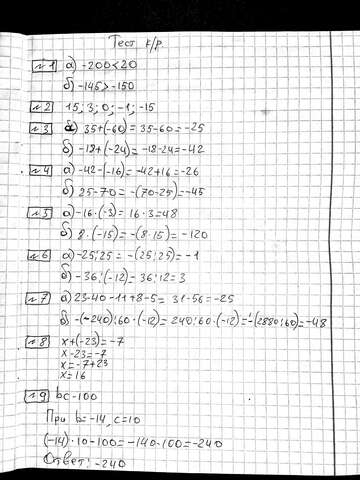 Тест к/р.
№1 а) -200<20
б) -145>-150
№2 15; 3; 0; -1; -15
№3 а) 35+(-60)=35-60=-25
б) -18+(-24)=-18-24=-42
№4 а) -42-(-16)=-42+16=-26
б) 25-70=-(70-25)=-45
№5 а) -16·(-3)=16·3=48
б) 8·(-15)=-(8·15)=-120
№6 а) -25:25=-(25:25)=-1
б) -36:(-12)=36:12=3
№7 а) 23-40-11+8-5=31-56=-25
б) -(-240):60·(-12)=240:60·(-12)=-(2880:60)=-48
№8 x+(-23)=-7
x-23=-7
x=-7+23
x=16
№9 bc-100
При b=-14, c=10
(-14)·10-100=-140-100=-240
Ответ: -240